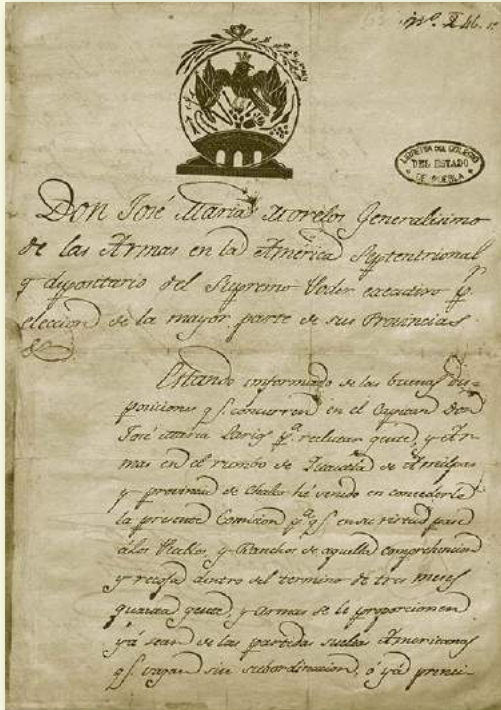 LIBRERIA DEL COLEGIO
DEL ESTADO
DE PUEBLA
Don José Maria Morelos Generalisimo
de las Armas en la América Septentrional
y depositario del Supremo Poder executivo p.r
eleccion de la mayor parte de sus Provincias
&
Estando informado de las buenas dis-
posiciones q.e concurren en el Capitan Don
José Maria Larios p.a reclutar gente, y Ar-
mas en el rumbo de Cuautla de Amilpas
y provincia de Chalco hé venido en concederle
la presente Comision p.a q.e en su virtud pase
álos Pueblos, y Ranchos de aquella comprehencion
y recoja dentro del termino de tres meses
quanta gente, y armas se le proporcionen
yá sean de las partidas sueltas Americanas
q.e vagan sin subordinacion, ó yá